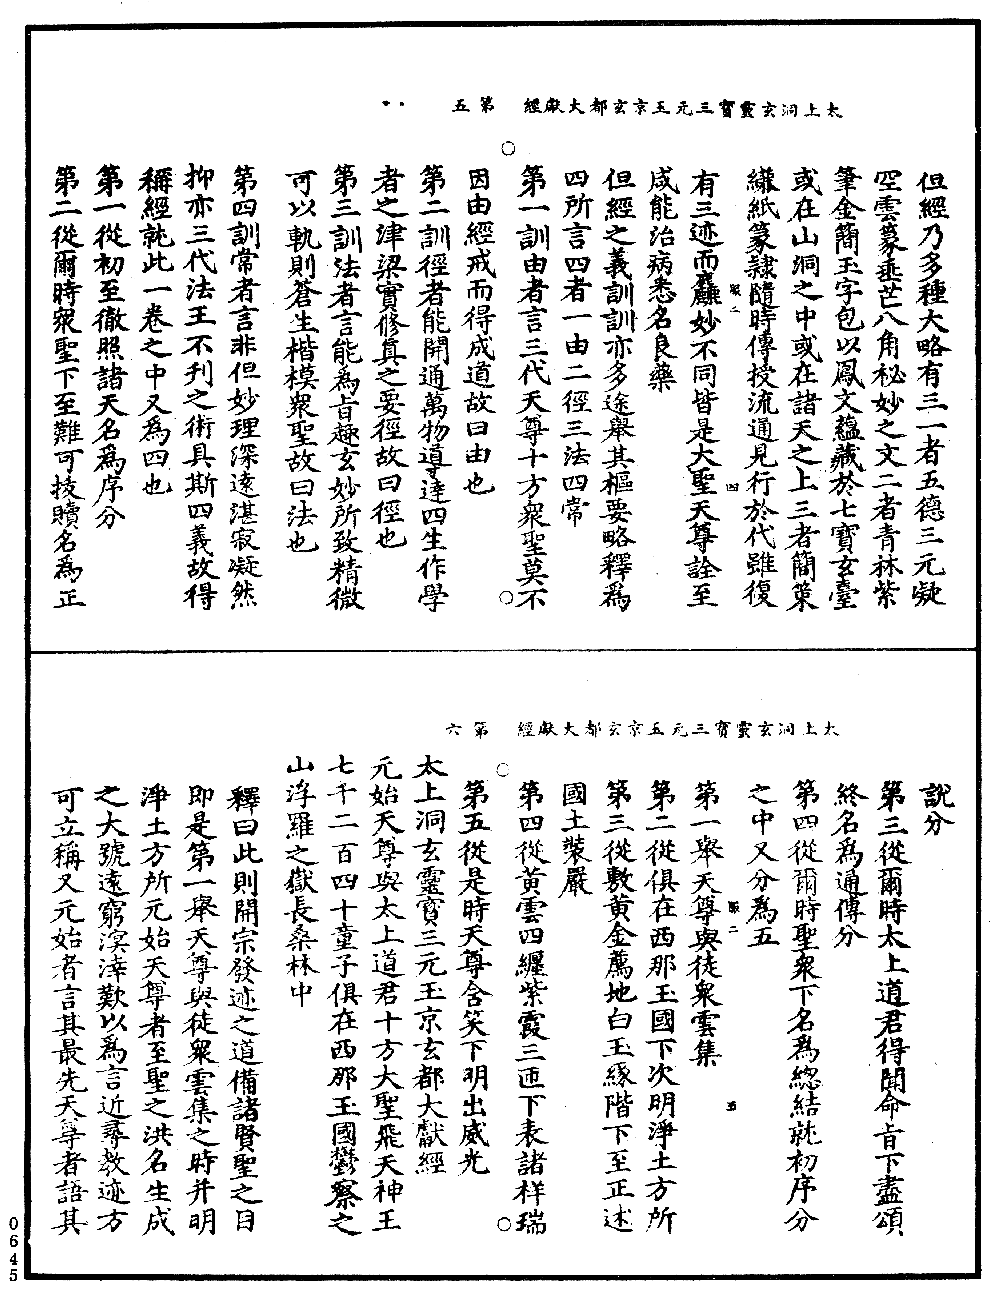 太上洞玄靈寶三元玉京玄都大獻經　第五
但經乃多種大略有三一者五德三元凝
空雲篆垂芒八角秘妙之文二者青林紫
筆金簡玉字包以鳳文蘊藏於七寶玄臺
或在山洞之中或在諸天之上三者簡策
縑紙篆隷隨時傳授流通見行於代雖復
有三迹而麤妙不同皆是大聖天尊詮至
咸能治病悉名良藥
但經之義訓訓亦多途舉其樞要略釋爲
四所言四者一由二徑三法四常
第一訓由者言三代天尊十方衆聖莫不
因由經戒而得成道故曰由也
第二訓徑者能開通萬物導達四生作學
者之津梁實修真之要徑故曰徑也
第三訓法者言能爲旨趣玄妙所致精微
可以軌則蒼生楷模衆聖故曰法也
第四訓常者言非但妙理深遠湛寂凝然
抑亦三代法王不刊之術具斯四義故得
稱經就此一卷之中又爲四也
第一從初至徹照諸天名爲序分
第二從爾時衆聖下至難可拔贖名爲正
太上洞玄靈寶三元玉京玄都大獻經　第六
說分
第三從爾時太上道君得聞命旨下盡頌
終名爲通傳分
第四從爾時聖衆下名爲總結就初序分
之中又分爲五
第一舉天尊與徒衆雲集
第二從俱在西那玉國下次明淨土方所
第三從敷黃金薦地白玉緣階下至正述
國土裝嚴
第四從黃雲四纏紫霞三迊下表諸祥瑞
第五從是時天尊含笑下明出威光
太上洞玄靈寶三元玉京玄都大獻經
元始天尊與太上道君十方大聖飛天神王
七千二百四十童子俱在西那玉國鬱察之
山浮羅之嶽長桑林中
釋曰此則開宗發迹之道備諸賢聖之目
即是第一舉天尊與徒衆雲集之時并明
淨土方所元始天尊者至聖之洪名生成
之大號遠窮溟涬歎以爲言近尋教迹方
可立稱又元始者言其最先天尊者語其
0645